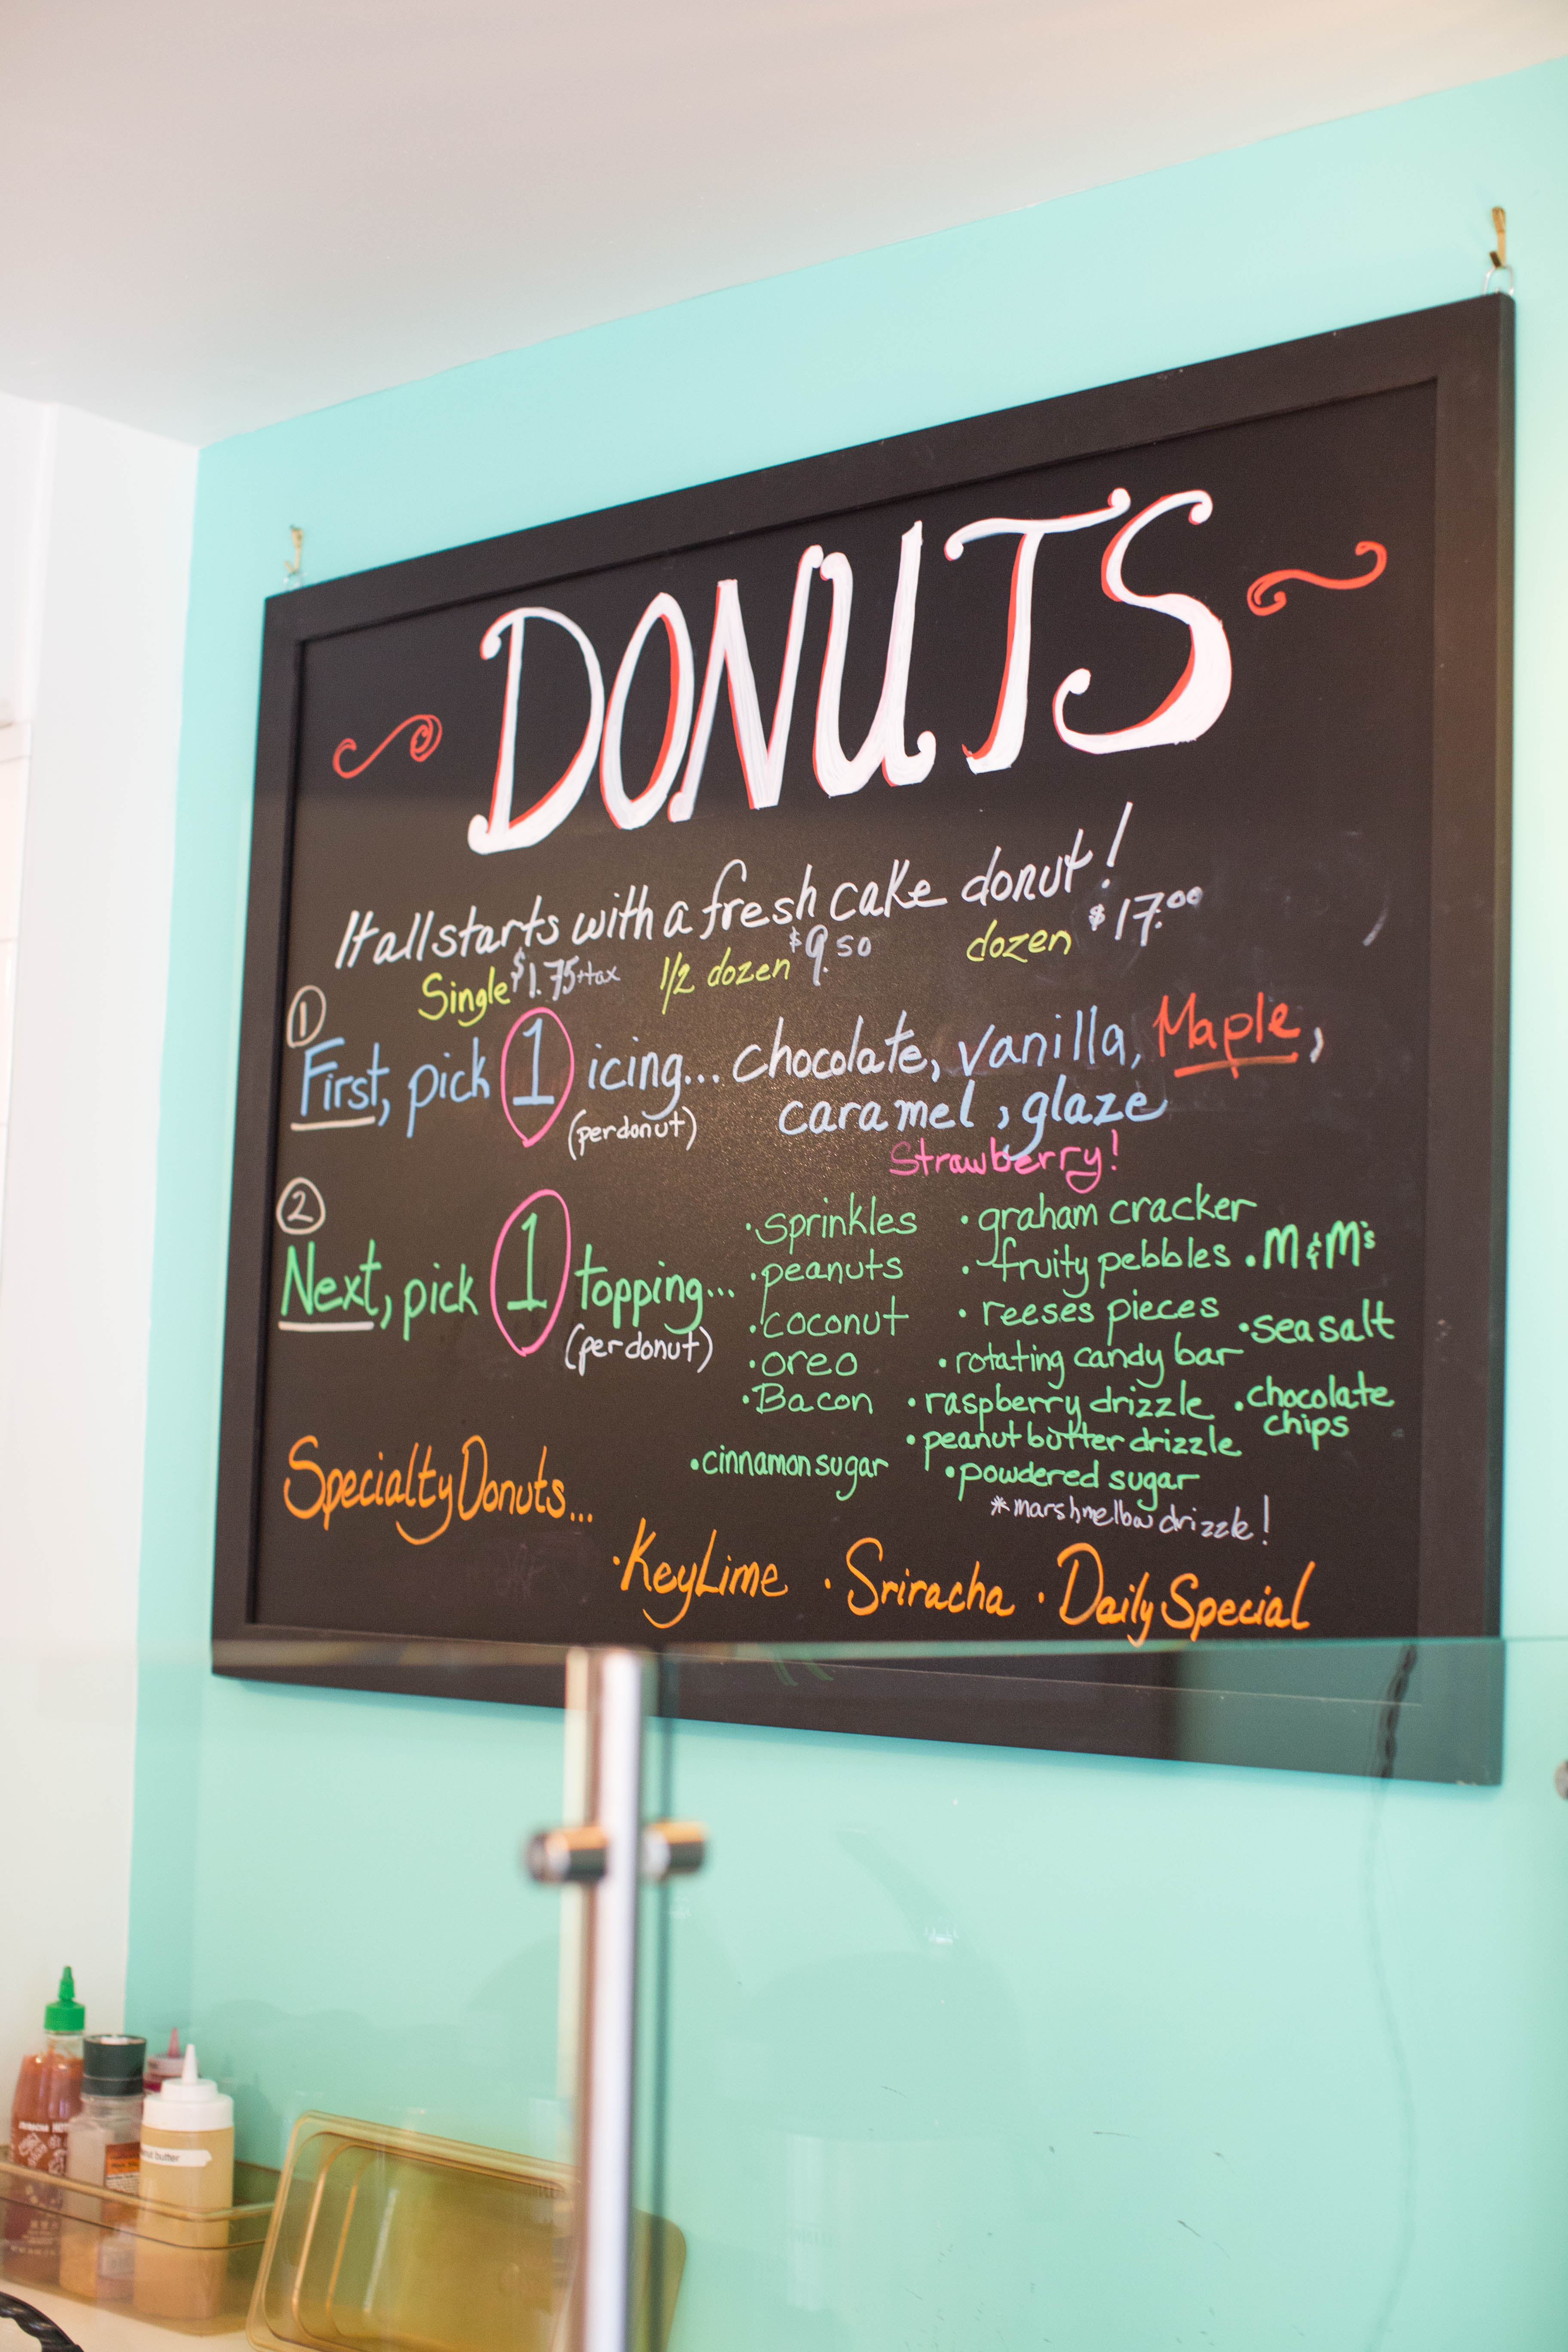 DONUTS
It all starts with a fresh cake donut!
Single $1.75+tax 1/2 dozen $9.50 dozen $17.00
1
First, pick 1 icing... chocolate, vanilla, Maple,
(per donut) caramel, glaze
Strawberry!
2
Next, pick 1 topping...
(per donut)
• sprinkles • graham cracker
• peanuts • fruity pebbles • M&M's
• coconut • reeses pieces • sea salt
• oreo • rotating candy bar
• Bacon • raspberry drizzle • chocolate
chips
• peanut butter drizzle
• cinnamon sugar • powdered sugar
*marshmellow drizzle!
Specialty Donuts...
• Key Lime • Sriracha • Daily Special
butter